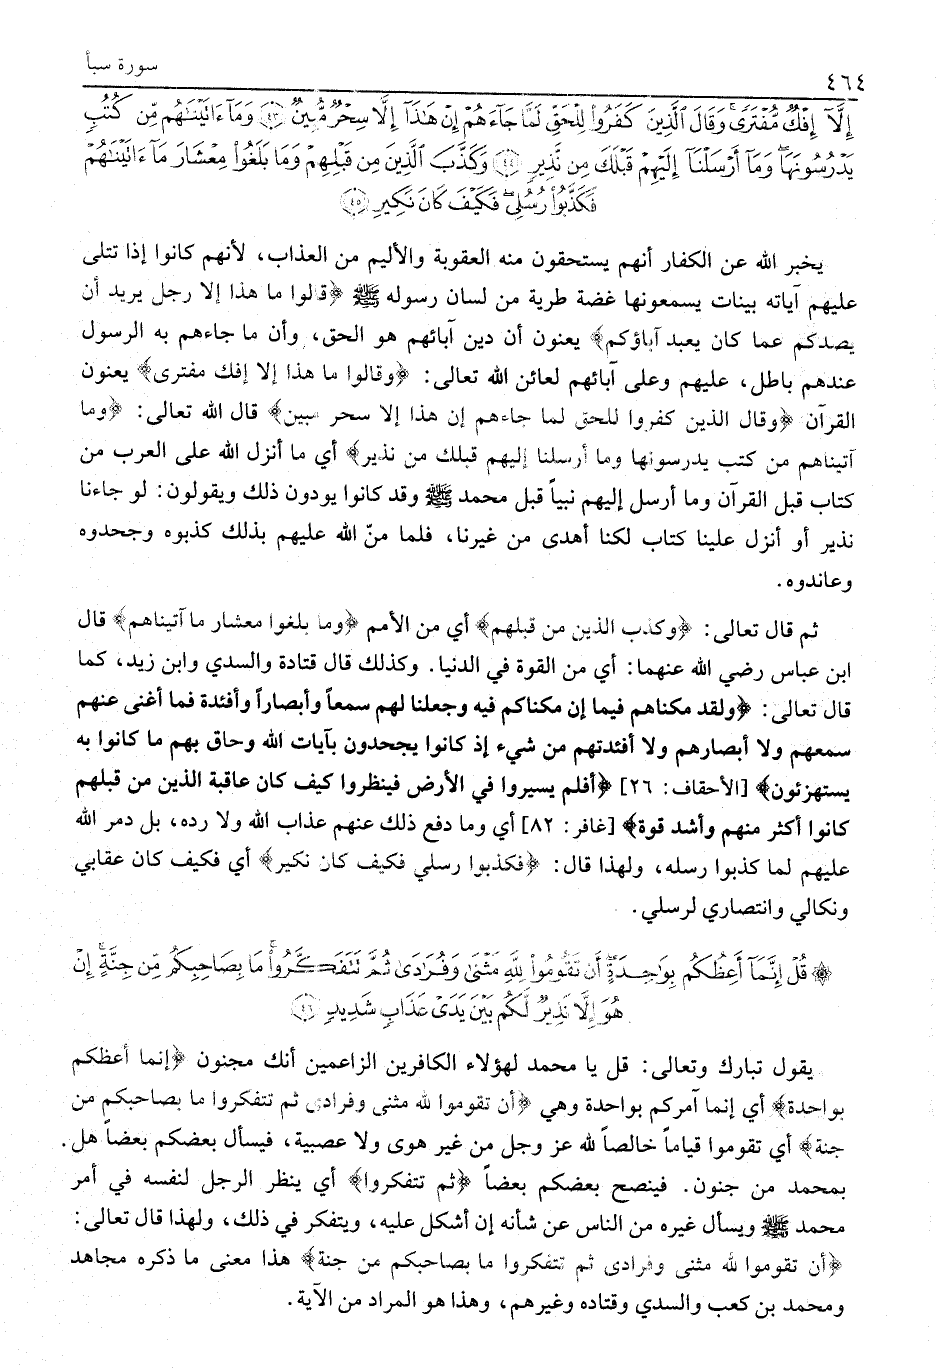 ٤٦٤
سورة سبأ
إِلَّآ إِفْكٌ مُّفْتَرًى ۚ وَقَالَ ٱلَّذِينَ كَفَرُوا۟ لِلْحَقِّ لَمَّا جَآءَهُمْ إِنْ هَٰذَآ إِلَّا سِحْرٌ مُّبِينٌ ۝٤٣ وَمَآ ءَاتَيْنَٰهُم مِّن كُتُبٍ
يَدْرُسُونَهَا ۖ وَمَآ أَرْسَلْنَآ إِلَيْهِمْ قَبْلَكَ مِن نَّذِيرٍ ۝٤٤ وَكَذَّبَ ٱلَّذِينَ مِن قَبْلِهِمْ وَمَا بَلَغُوا۟ مِعْشَارَ مَآ ءَاتَيْنَٰهُمْ
فَكَذَّبُوا۟ رُسُلِى ۖ فَكَيْفَ كَانَ نَكِيرِ ۝٤٥
يخبر الله عن الكفار أنهم يستحقون منه العقوبة والأليم من العذاب، لأنهم كانوا إذا تتلى
عليهم آياته بينات يسمعونها غضة طرية من لسان رسوله ﷺ ﴿قالوا ما هذا إلا رجل يريد أن
يصدكم عما كان يعبد آباؤكم﴾ يعنون أن دين آبائهم هو الحق، وأن ما جاءهم به الرسول
عندهم باطل، عليهم وعلى آبائهم لعائن الله تعالى: ﴿وقالوا ما هذا إلا إفك مفترى﴾ يعنون
القرآن ﴿وقال الذين كفروا للحق لما جاءهم إن هذا إلا سحر مبين﴾ قال الله تعالى: ﴿وما
آتيناهم من كتب يدرسونها وما أرسلنا إليهم قبلك من نذير﴾ أي ما أنزل الله على العرب من
كتاب قبل القرآن وما أرسل إليهم نبياً قبل محمد ﷺ وقد كانوا يودون ذلك ويقولون: لو جاءنا
نذير أو أنزل علينا كتاب لكنا أهدى من غيرنا، فلما منّ الله عليهم بذلك كذبوه وجحدوه
وعاندوه.
ثم قال تعالى: ﴿وكذب الذين من قبلهم﴾ أي من الأمم ﴿وما بلغوا معشار ما آتيناهم﴾ قال
ابن عباس رضي الله عنهما: أي من القوة في الدنيا. وكذلك قال قتادة والسدي وابن زيد، كما
قال تعالى: ﴿ولقد مكناهم فيما إن مكناكم فيه وجعلنا لهم سمعاً وأبصاراً وأفئدة فما أغنى عنهم
سمعهم ولا أبصارهم ولا أفئدتهم من شيء إذ كانوا يجحدون بآيات الله وحاق بهم ما كانوا به
يستهزئون﴾ [الأحقاف: ٢٦] ﴿أفلم يسيروا في الأرض فينظروا كيف كان عاقبة الذين من قبلهم
كانوا أكثر منهم وأشد قوة﴾ [غافر: ٨٢] أي وما دفع ذلك عنهم عذاب الله ولا رده، بل دمر الله
عليهم لما كذبوا رسله، ولهذا قال: ﴿فكذبوا رسلي فكيف كان نكير﴾ أي فكيف كان عقابي
ونكالي وانتصاري لرسلي.
۞ قُلْ إِنَّمَآ أَعِظُكُم بِوَٰحِدَةٍ ۖ أَن تَقُومُوا۟ لِلَّهِ مَثْنَىٰ وَفُرَٰدَىٰ ثُمَّ تَتَفَكَّرُوا۟ ۚ مَا بِصَاحِبِكُم مِّن جِنَّةٍ ۚ إِنْ
هُوَ إِلَّا نَذِيرٌ لَّكُم بَيْنَ يَدَىْ عَذَابٍ شَدِيدٍ ۝٤٦
يقول تبارك وتعالى: قل يا محمد لهؤلاء الكافرين الزاعمين أنك مجنون ﴿إنما أعظكم
بواحدة﴾ أي إنما آمركم بواحدة وهي ﴿أن تقوموا لله مثنى وفرادى ثم تتفكروا ما بصاحبكم من
جنة﴾ أي تقوموا قياماً خالصاً لله عز وجل من غير هوى ولا عصبية، فيسأل بعضكم بعضاً هل.
بمحمد من جنون. فينصح بعضكم بعضاً ﴿ثم تتفكروا﴾ أي ينظر الرجل لنفسه في أمر
محمد ﷺ ويسأل غيره من الناس عن شأنه إن أشكل عليه، ويتفكر في ذلك، ولهذا قال تعالى:
﴿أن تقوموا لله مثنى وفرادى ثم تتفكروا ما بصاحبكم من جنة﴾ هذا معنى ما ذكره مجاهد
ومحمد بن كعب والسدي وقتاده وغيرهم، وهذا هو المراد من الآية.